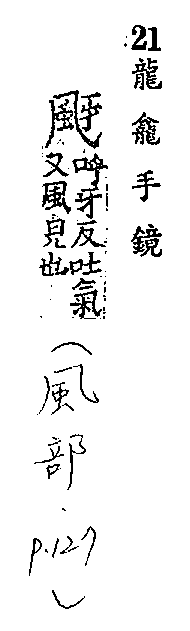 21 龍龕手鏡
颬 呼牙反吐氣
又風皃也
（風部.p.127）